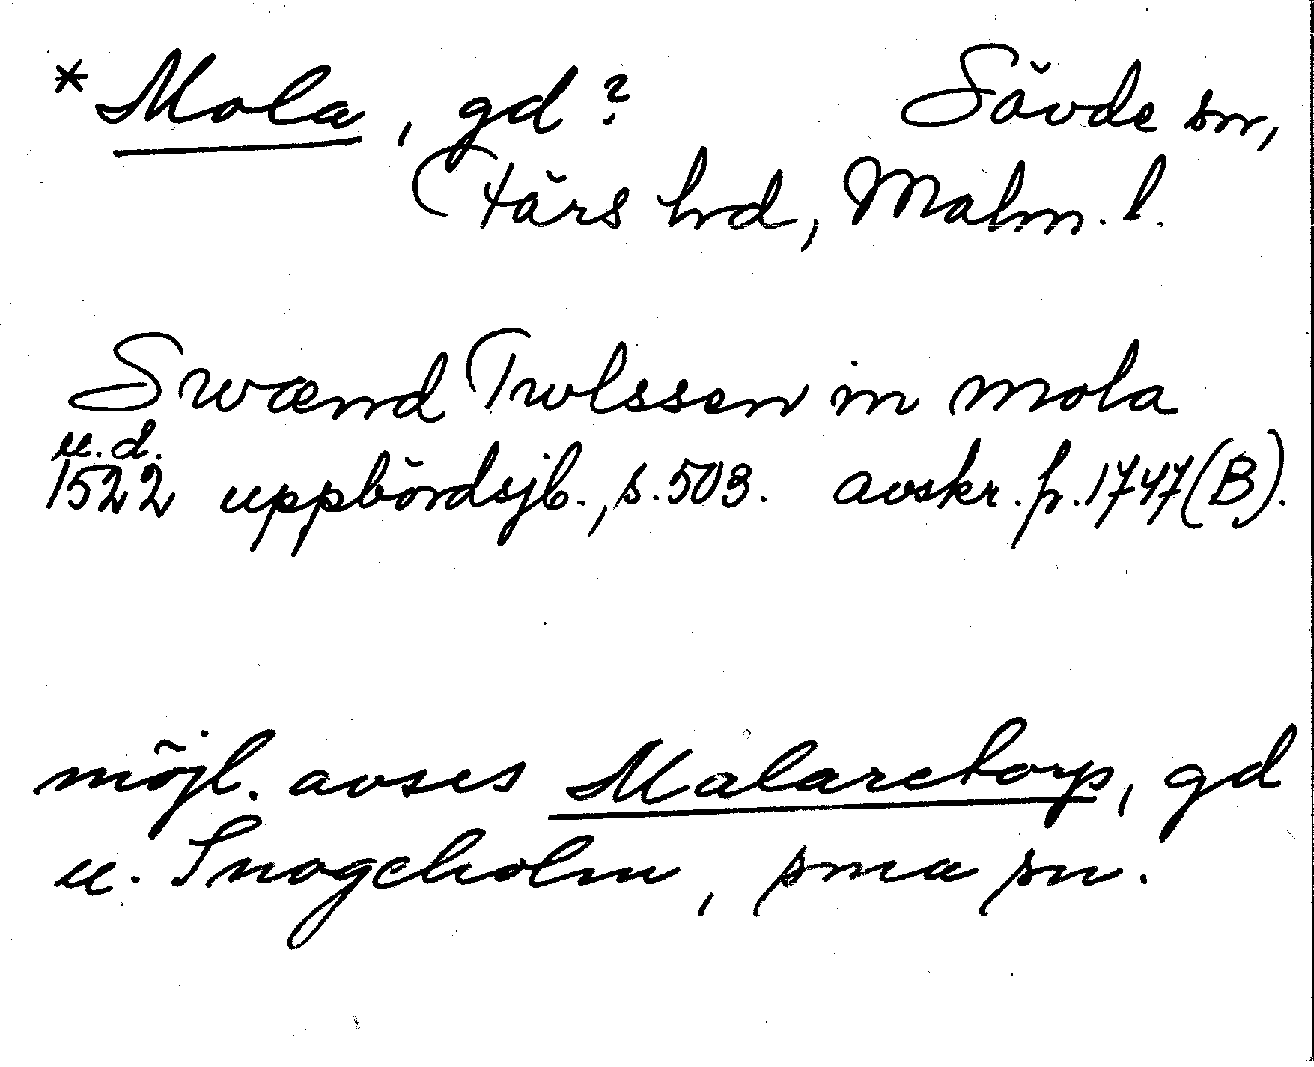 *Mola, gd? Sövde sn,
Färs hd, Malm. l.
Swænd Trvlssen in mola
u.d.
1522 uppbördsjb., s. 503. avskr. fr. 1747 (B).
möjl. avses Malaretorp, gd
u. Snogeholm, sma sn.